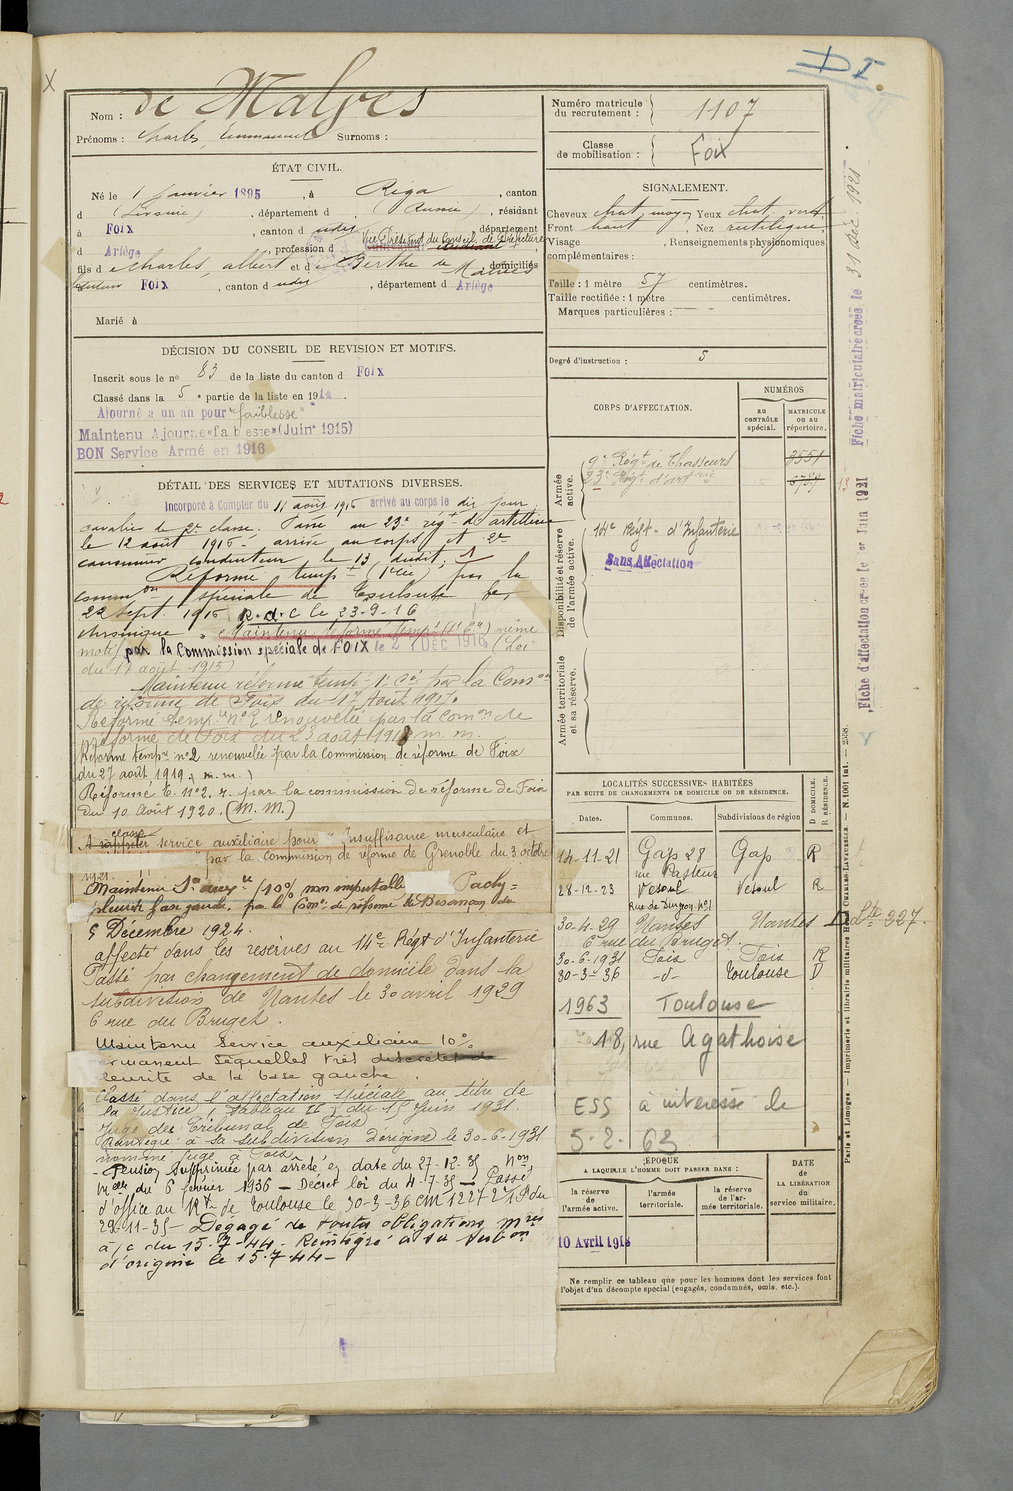 D I.
X
Nom : de Malves
Prénoms : Charles, Emmanuel Surnoms :
Numéro matricule du recrutement : 1107
Classe de mobilisation : Foix
ÉTAT CIVIL.
Né le 1 Janvier 1895, à Riga, canton
d (Livonie), département d (Russie), résidant
à FOIX, canton d udes, département
d Ariège, profession d Vice Président du Conseil de Préfecture
fils de Charles, Albert et de Berthe de Malves, domiciliés
FOIX, canton d udes, département d Ariège
Marié à
SIGNALEMENT.
Cheveux chat. moyen Yeux chat. vert
Front haut, Nez rectiligne
Visage , Renseignements physionomiques
complémentaires :
Taille : 1 mètre 57 centimètres.
Taille rectifiée : 1 mètre centimètres.
Marques particulières :
Degré d'instruction : 5
DÉCISION DU CONSEIL DE REVISION ET MOTIFS.
Inscrit sous le no 83 de la liste du canton d FOIX
Classé dans la 5 e partie de la liste en 1914.
Ajourné a un an pour "faiblesse"
Maintenu Ajourné "faiblesse" (Juin 1915)
BON Service Armé en 1916
DÉTAIL DES SERVICES ET MUTATIONS DIVERSES.
Incorporé à Compter du 11 août 1916 arrivé au corps le dit jour
cavalier de 2e classe. Passé au 23e régt d'artillerie
le 12 août 1916. arrivé au corps et 2e
canonnier conducteur le 13 dudit.
Réformé tempre (1 cat) par la
common spéciale de
22 sept. 1916 R.d.C le 23-9-16
chronique . Maintenu réformé tempre (1e Cie) même
motif par la Commission spéciale de FOIX le 2 DEC 1916 (Loi
du 17 août 1915)
Maintenu réformé temp. 1e Cie par la Comon
de réforme de Foix du 17 Août 1917.
Réforme temp.re no 2 renouvelée par la Comon de
réforme de Foix du 23 août 1918 m. m.
Réforme tempre no2 renouvelée par la Commission de réforme de Foix
du 27 août 1919. m. m.)
Réforme t. no 2. r. par la commission de réforme de Foix
du 10 Août 1920. (M. M.)
A rappeler classé service auxiliaire pour "Insuffisance musculaire et
par la commission de réforme de Grenoble du 3 octobre
1921.
Maintenu Se auxre (10% non imputable Pachy=
pleurite base gauche. par la Comon de réforme de Besançon du
5 Décembre 1924.
affecté dans les réserves au 14e Régt d'Infanterie
Passé par changement de domicile dans la
subdivision de Nantes le 30 avril 1929
6 rue du Bruget.
Maintenu Service auxiliaire 10%
permanent séquelles très discrètes de
pleurite de la base gauche.
Classé dans l'affectation spéciale au titre de
la Justice, Tableau II du 15 Juin 1931.
Juge du Tribunal de Foix
Réintégré à la subdivision d'origine le 30-6-1931
nommé juge à Foix
- Pension supprimée par arrêté en date du 27-12-35 Non,
Melle du 6 février 1936 - Décret loi du 4-7-35 - Passé
d'office au Rt de Toulouse le 30-3-36 CM 1227 2 1 P du
29-11-35 - Dégagé de toutes obligations mres
à /c du 15-7-44 - Réintégré à sa subon
d'origine le 15-7-44 -
CORPS D'AFFECTATION.
NUMÉROS
AU CONTRÔLE spécial.
MATRICULE ou au répertoire.
Armée active.
9e Régt de Chasseurs 3551
23e Régt d'artie 6789
Disponibilité et réserve de l'armée active.
14e Régt d'Infanterie
Sans Affectation
Armée territoriale et sa réserve.
LOCALITÉS SUCCESSIVES HABITÉES
PAR SUITE DE CHANGEMENTS DE DOMICILE OU DE RÉSIDENCE.
Dates. Communes. Subdivisions de région D DOMICILE. R RÉSIDENCE.
14-11-21 Gap 28 rue Pasteur Gap R
28-12-23 Vesoul Vesoul R
30-4-29 Nantes Nantes D
6 rue du Bruget.
30-6-1931 Foix Foix R
30-3-36 -d- Toulouse D
1963 Toulouse
18, rue Agathoise
ESS à intéressé le
5-2-63
Lte 327.
ÉPOQUE
A LAQUELLE L'HOMME DOIT PASSER DANS :
la réserve de l'armée active.
l'armée territoriale.
la réserve de l'armée territoriale.
DATE de LA LIBÉRATION du service militaire.
10 Avril 1918
Ne remplir ce tableau que pour les hommes dont les services font
l'objet d'un décompte spécial (engagés, condamnés, omis, etc.).
Fiche matriculaire créée le 31 Déc 1921
Fiche d'affectation créée le 1er Juin 1921
Paris et Limoges. — Imprimerie et librairie militaires Henri CHARLES-LAVAUZELLE. — N. 1001 int. — 2558.